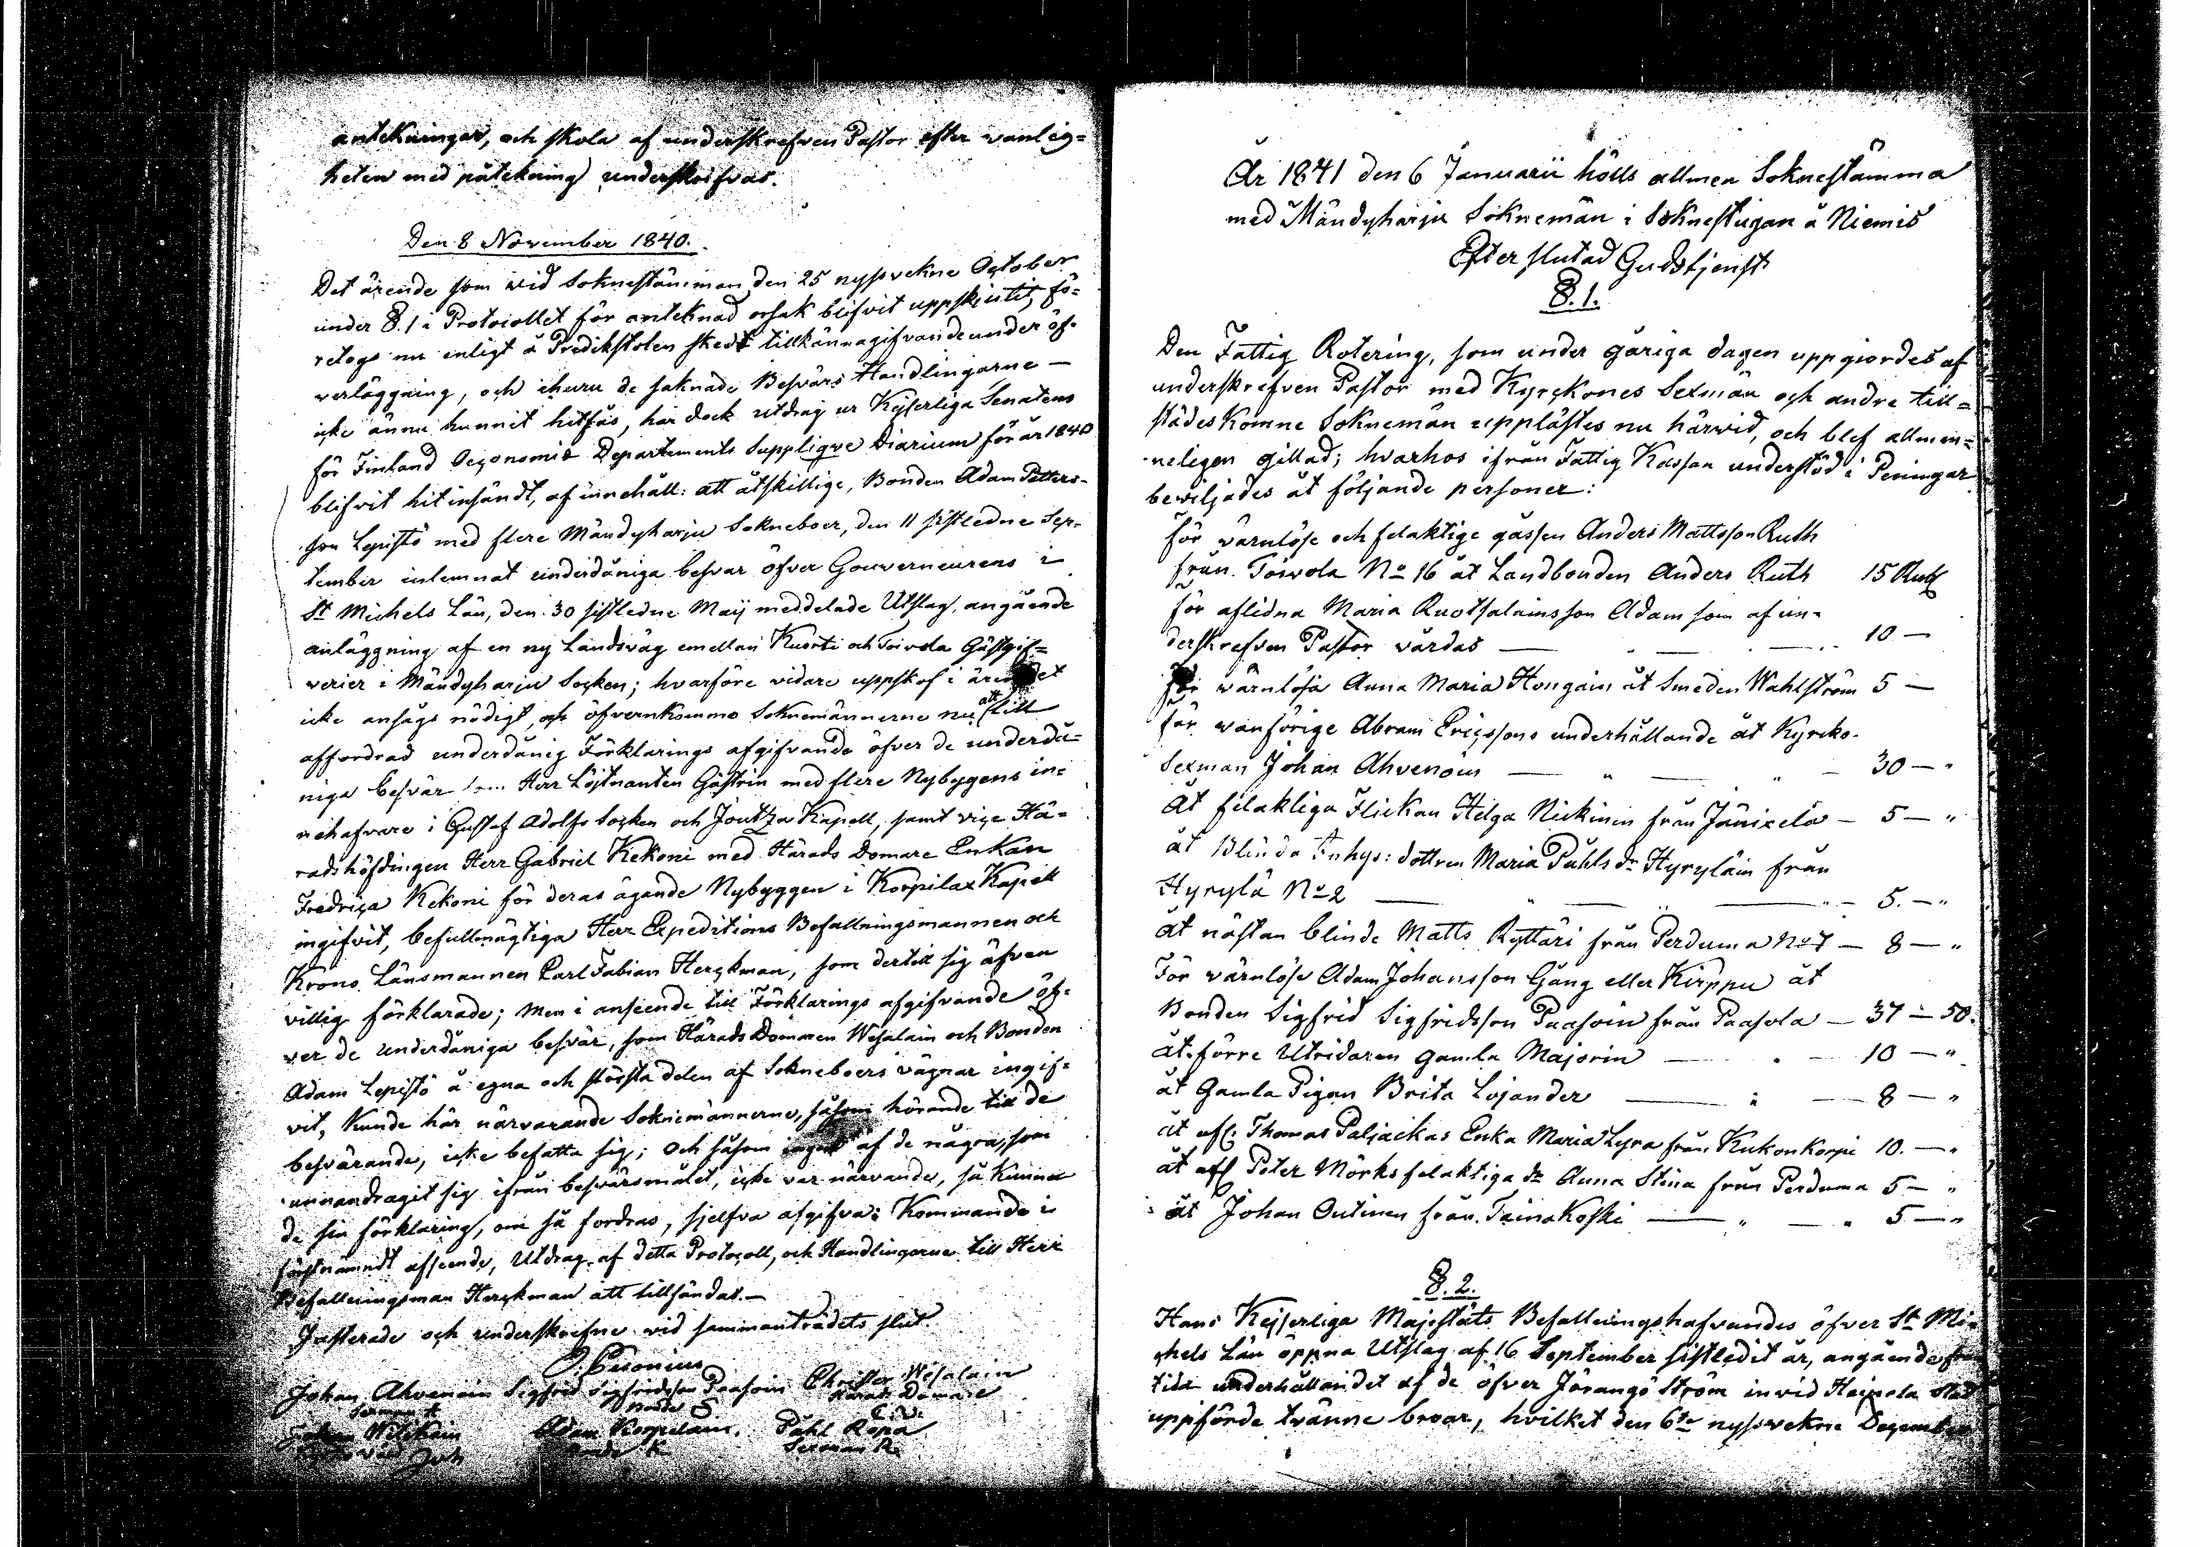 antekningar, och skola af underskrefven Pastor efter wanlig=
heten med påtekning underskrifvas.
Den 8 November 1840.
Det ärende som wid Soknestämman den 25 nyssvekne October
under §. 1 i Protocollet för anteknad orsak blifvit uppskjutit, fö=
retogs nu enligt å Predikstolen skedt tillkännagifvande under öf=
verläggning, och ehuru de saknade Besvärs Handlingarne —
icke ännu hunnit hitfås, har dock utdrag ur Kejserliga Senatens
för Finland Oeconomie Departements Supplique Diarium för år 1840
blifvit hitinsändt, af innehåll: att åtskillige, Bonden Adam Petters=
son Lepistö med flere Mändyharju Sokneboer, den 11 sistledne Sep=
tember inlemnat underdåniga besvär öfver Gouverneurens i
St Michels Län, den 30 sistledne Maij meddelade Utslag, angående
anläggning af en ny Landsväg emellan Kuorti och Toivola Gästgif=
verier i Mändyharju Socken; hvarföre vidare uppskof i ärendet
icke ansågs nödigt, och öfverenkommo Soknemännerne nu att till
affordrad underdånig Förklarings afgifvande öfver de underdå=
niga besvär som Herr Löjtnanten Gåstrin med flere Nybyggens in=
nehafvare i Gustaf Adolfs Socken och Joutza Kapell, samt vice Hä=
radshöfdingen Herr Gabriel Kekoni med Härads Domare Enkan
Fredrica Kekoni för deras ägande Nybyggen i Korpilax Kapell
ingifvit, befullmägtiga Herr Expeditions Befallningsmannen och
Krono Länsmannen Carl Fabian Herckman, som dertill sig äfven
villig förklarade; men i anseende till Förklarings afgifvande öf=
ver de underdåniga besvär, som Härads Dommen Wesalain och Bonden
Adam Lepistö å egna och största delen af Sokneboers vägnar ingif=
vit, kunde här närvarande Soknemännerne, såsom hörande till de
besvärande, icke befatta sig; och såsom ingen af de några, som
unnandragit sig ifrån besvärsmålet, icke var närvande, så kunna
de sin förklaring, om så fordras, sjelfva afgifva; Kommande i
förstnämndt afseende, Utdrag af detta Protocoll, och Handlingarne till Herr
Befallningsman Herckman att tillsändas.—
Justerade och underskrefne wid sammanträdets slut.
Johan Ahvenain Sigfrid Sigfridsson Paasoin Christer Wesalain
Sexman A Bonde S Härads Domare
Johan Wilskain Adam Korpelain, Påhl Ropa
Bonde K Sexman R
År 1841 den 6 Januarii hölls allmen Soknestämma
med Mändyharju Soknemän i Soknestugan å Niemis
Efter slutad Gudstjenst
§. 1.
Den Fattig Rotering, som under gåriga dagen uppgjordes af
underskrefven Pastor med Kyrckones Sexmän och andre till=
städes komne Soknemän upplästes nu härwid, och blef allmen=
neligen gillad; hvarhos ifrån Fattig Kassan understöd i Peningar
beviljades åt följande personer:
för värnlöse och felaktige gåssen Anders Mattsson Ruth
från Toivola No 16 åt Landbonden Anders Ruth 15 Rub
för aflidna Maria Ruotsalains son Adam som af un=
derskrefven Pastor vårdas — 10 —
För wärnlösa Anna Maria Hongain åt Smeden Wahlström 5 —
för wanförige Abram Ericssons underhållande åt Kyrcko=
Sexman Johan Ahvenoin — " — " — 30 — "
Åt felaktiga Flickan Helga Nickinin från Jänixelä — 5 — "
åt Blinda Inhys: dottren Maria Påhls dr Hyryläin från
Hyrylä No 2 — " — " — 5. — "
åt nästan blinde Matts Ryttäri från Perduma No 7 — 8 — "
För wärnlöse Adam Johansson Gjäng eller Kirppu åt
Bonden Sigfrid Sigfridsson Paasoin från Paasola — 37 — 50.
åt förre Utridaren gamla Majorin — " — 10 — "
åt Gamla Pigan Brita Lojander — " — 8 — "
åt afl: Thomas Paljackas Enka Maria Lyra från Kukonkorpi 10. — "
åt afl Peter Mörks felaktiga dr Anna Stina från Perduma 5 — "
åt Johan Outinen från Tainakoski — " — " 5 — "
§. 2.
Hans Kejserliga Majestäts Befallningshafvandes öfver St Mi=
chels Län öppna Utslag af 16 September sistledit år, angående fram
tida underhållandet af de öfver Jörangö Ström invid Haipala stad
uppförde tvänne broar, hvilket den 6te nyssvekne December